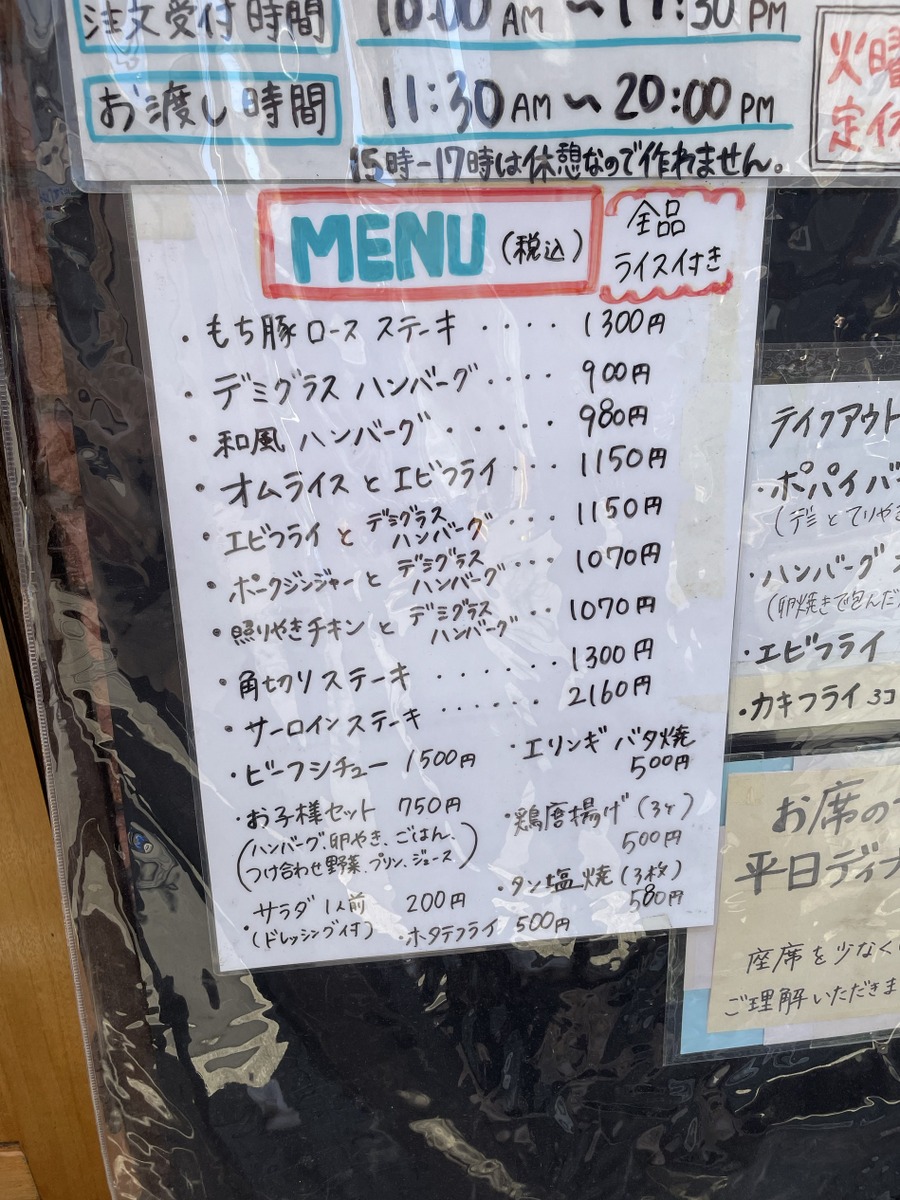 注文受付時間 10:00 AM 〜 19:30 PM
お渡し時間 11:30 AM 〜 20:00 PM
15時-17時は休憩なので作れません。
火曜
定休
MENU (税込)
全品
ライス付き
・もち豚ロースステーキ ・・・・ 1300円
・デミグラスハンバーグ ・・・・ 900円
・和風ハンバーグ ・・・・・ 980円
・オムライスとエビフライ ・・・ 1150円
・エビフライとデミグラスハンバーグ ・・・ 1150円
・ポークジンジャーとデミグラスハンバーグ ・・・ 1070円
・照りやきチキンとデミグラスハンバーグ ・・ 1070円
・角切りステーキ ・・・・・・ 1300円
・サーロインステーキ ・・・・・・ 2160円
・ビーフシチュー 1500円
・お子様セット 750円
(ハンバーグ、卵やき、ごはん、
つけ合わせ野菜、プリン、ジュース)
・サラダ1人前 200円
(ドレッシング付)
・エリンギバタ焼
500円
・鶏唐揚げ(3ヶ)
500円
・タン塩焼(3枚)
580円
・ホタテフライ 500円
テイクアウト
・ポパイバ
(デミとてりやき
・ハンバーグ
(卵焼きで包んだ
・エビフライ
・カキフライ 3コ
お席の
平日ディナ
座席を少なく
ご理解いただきま